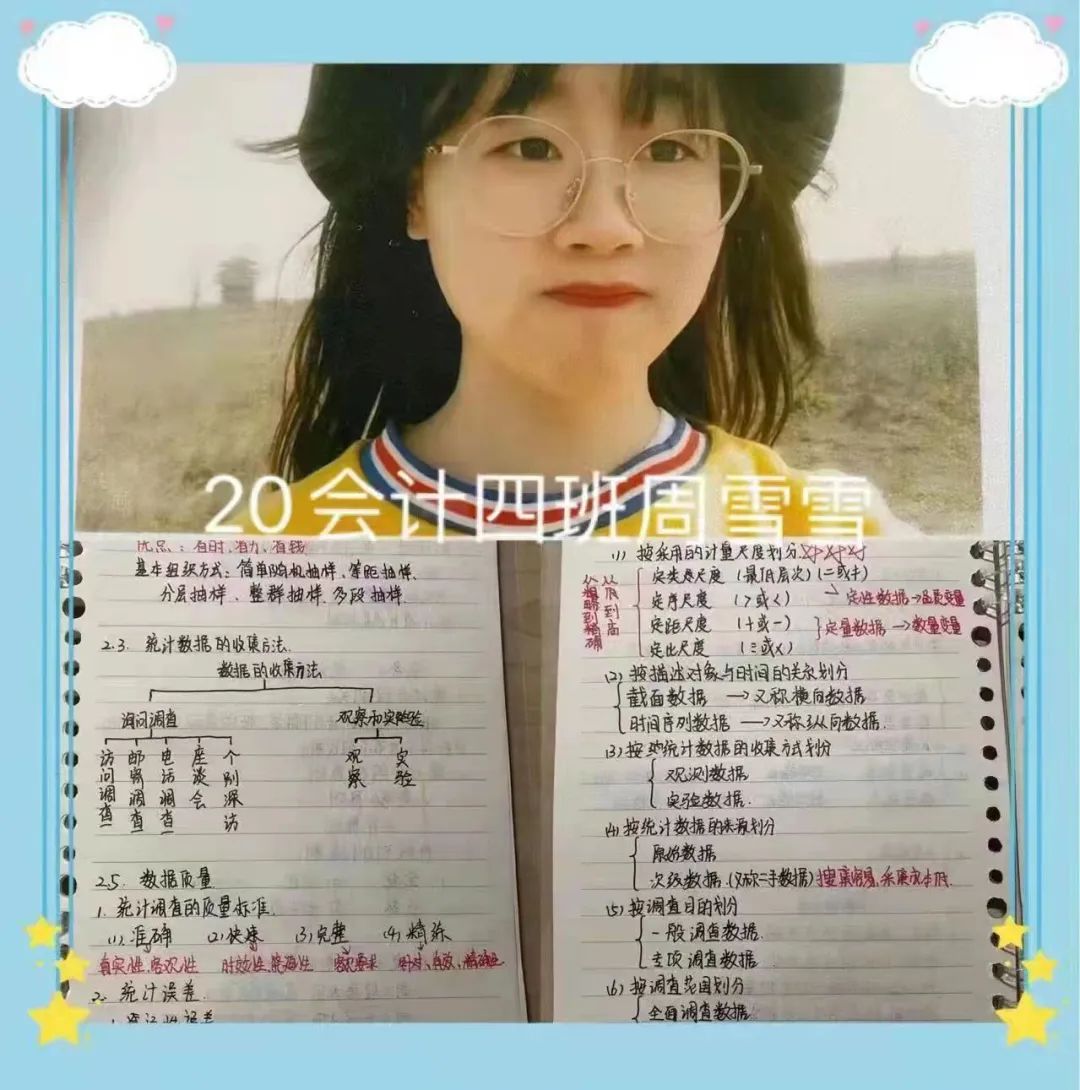 20会计四班周雪雪
优点：省时、省力、省钱
基本组织方式：简单随机抽样、等距抽样、
分层抽样、整群抽样、多段抽样
2.3. 统计数据的收集方法.
数据的收集方法
询问调查 观察和实验
访问调查 邮寄调查 电话调查 座谈会 个别深访 观察 实验
2.5. 数据质量
1. 统计调查的质量标准.
(1) 准确 (2) 快速 (3) 完整 (4) 精练
真实性、客观性 时效性、
2. 统计误差.
(1) 按采用的计量尺度划分
从低到高
从粗略到精确
定类尺度（最低层次）（=或≠）
定序尺度（>或<） 定性数据→品质变量
定距尺度（+或-） 定量数据→数量变量
定比尺度
(2) 按描述对象与时间的关系划分
截面数据 → 又称横向数据
时间序列数据 → 又称纵向数据.
(3) 按统计数据的收集方式划分
观测数据
实验数据.
(4) 按统计数据的来源划分
原始数据
次级数据.(又称二手数据) 搜集容易,采集成本低.
(5) 按调查目的划分
一般调查数据.
专项调查数据.
(6) 按调查范围划分
全面调查数据